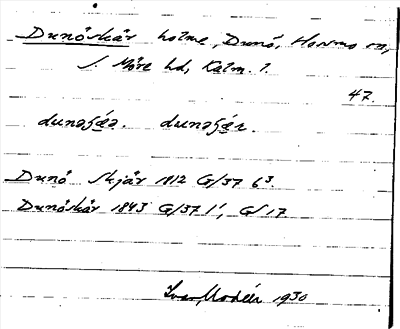 Dunöskär holme, Dunö, Hossmo sn,
S. Möre hd, Kalm. l.
47.
dunəʃæ̲ə. dunəʃæ̲r.
Dunö Skjär 1812 G/37 6³.
Dunöskär 1843 G/37 1', G/17
Ivar Modéer 1930